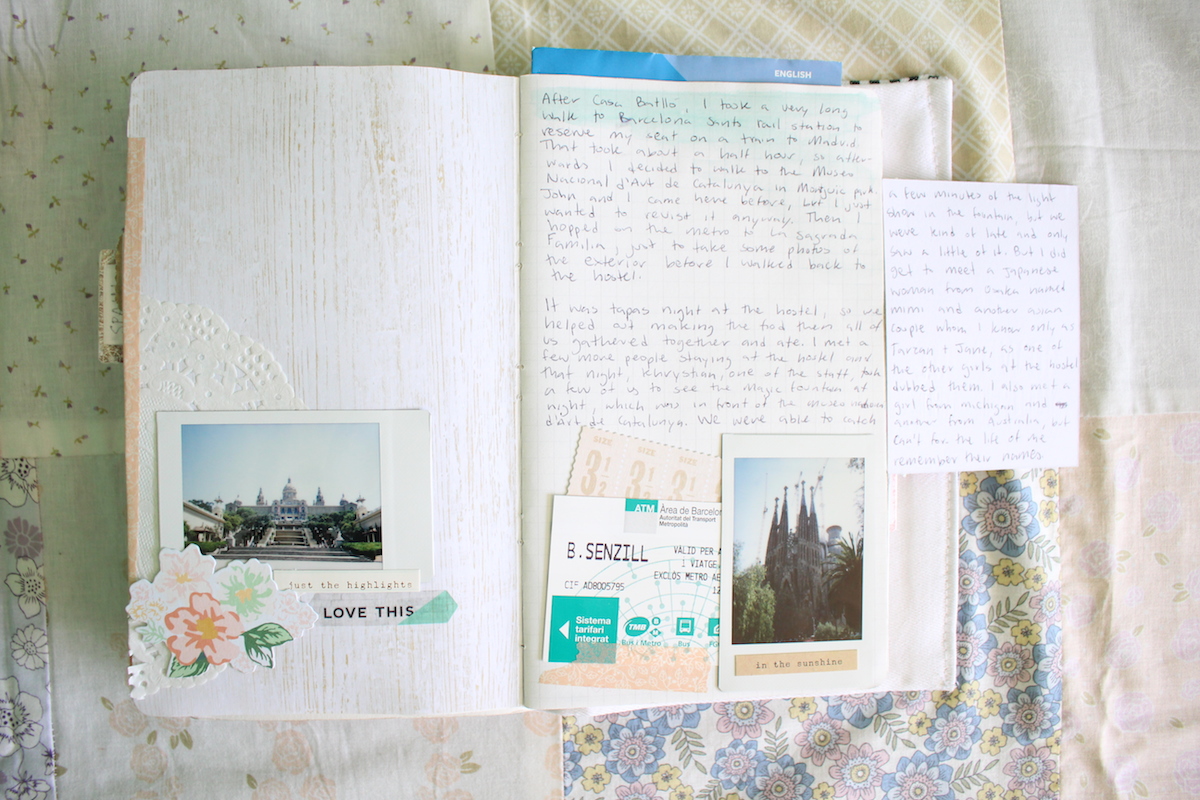 ENGLISH
After Casa Batlló, I took a very long
walk to Barcelona Sants rail station to
reserve my seat on a train to Madrid.
That took about a half hour, so after-
wards I decided to walk to the Museu
Nacional d'Art de Catalunya in Monjuic park.
John and I came here before, but I just
wanted to revist it anyway. Then I
hopped on the metro to La Sagrada
Familia, just to take some photos of
the exterior before I walked back to
the hostel.
It was tapas night at the hostel, so we
helped out making the food then all of
us gathered together and ate. I met a
few more people staying at the hostel and
that night, Khrystian, one of the staff, took
a few of us to see the Magic Fountain at
night, which was in front of the museu
d'art de Catalunya. We were able to catch
a few minutes of the light
show in the fountain, but we
were kind of late and only
saw a little of it. But I did
get to meet a Japanese
woman from Osaka named
mimi and another asian
couple whom I know only as
Tarzan + Jane, as one of
the other girls at the hostel
dubbed them. I also met a
girl from michigan and
another from Australia, but
can't for the life of me
remember their names
SPAIN
just the highlights
LOVE THIS
SIZE SIZE
3½ 3½ 3½
ATM Àrea de Barcelon
Autoritat del Transport
Metropolità
B.SENZILL
VÀLID PER A
1 VIATGE.
EXCLOS METRO AE
CIF A08005795
12
Sistema
tarifari
integrat
TMB
Bus i Metro
Bus
FG
in the sunshine